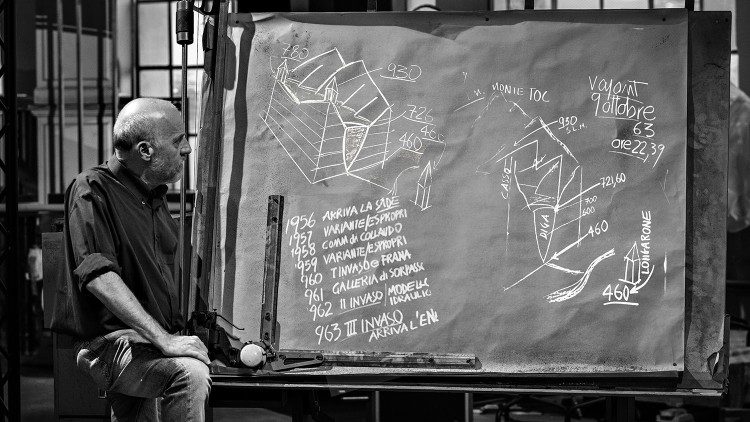 780
930
726
460
1956 ARRIVA LA SADE
1957 VARIANTE/ESPROPRI
1958 COMM di COLLAUDO
1959 VARIANTE/ESPROPRI
960 I INVASO e FRANA
961 GALLERIA di SORPASS
962 II INVASO/MODELLO IDRAULIC
963 III INVASO
ARRIVA L'EN
MONTE TOC
930 S.L.M.
CASSO
DIGA
721,60
700
600
460
Vajont
9 ottobre
63
ore 22,39
LONGARONE
460